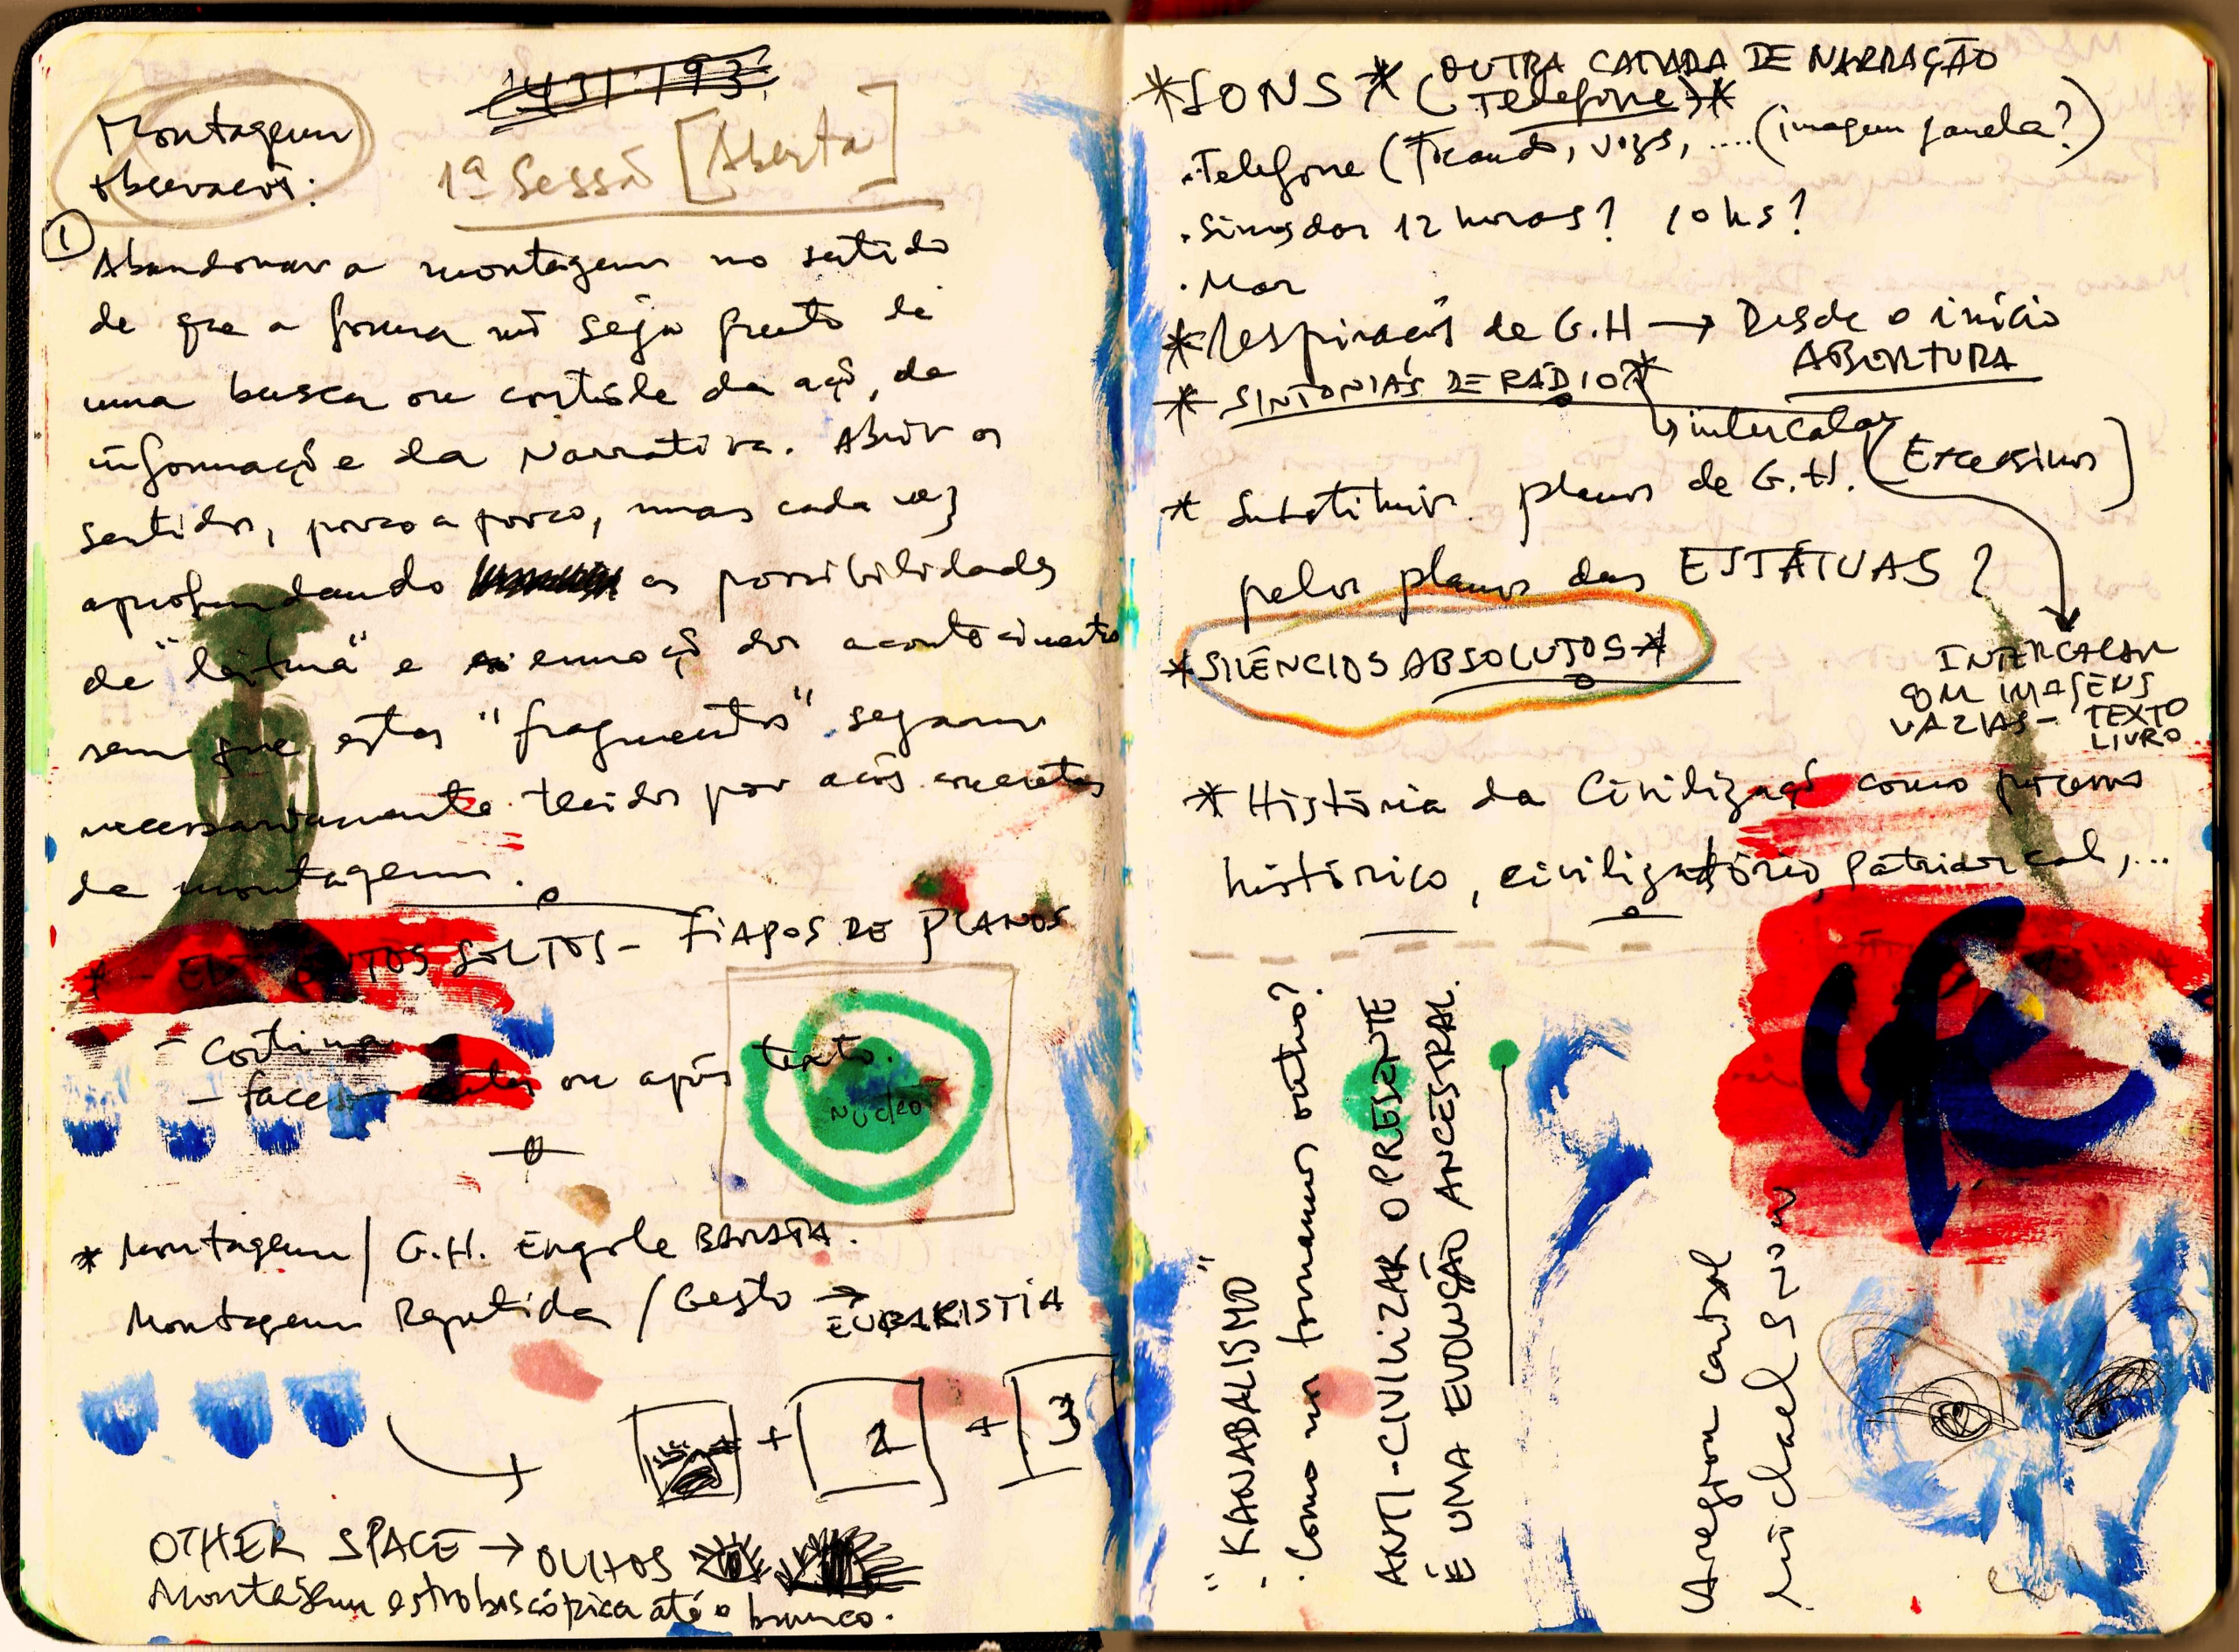 Montagem
observações:
1ª Sessão [Aberta]
①
Abandonar a montagem no sentido
de que a forma não seja fruto de
uma busca ou controle da ação, da
informação e da Narrativa. Abrir os
sentidos, pouco a pouco, mas cada vez
aprofundando as possibilidades
de "leitura" e emoção dos acontecimentos
sem que estes "fragmentos" sejam
necessariamente tecidos por ações concretas
da montagem.
SOLTOS - FIAPOS DE PLANOS
- Cortina
- faces antes ou após texto.
Núcleo
* Montagem / G.H. Engole BARATA.
Montagem Repetida / Gesto → EUCARISTIA
+ 2 + 3
OTHER SPACE → OLHOS
Montagem estroboscópica até o branco.
*SONS* OUTRA CAMADA DE NARRAÇÃO
(Telefone)*
. Telefone (Tocando, vozes, .... (imagem janela?)
. Sinos das 12 horas? 10 hs?
. Mar
* Respiração de G.H → Desde o início
ABERTURA
* SINTONIAS DE RÁDIO*
↳ intercalar
* Substituir planos de G.H. (Excessivos)
pelos planos das ESTÁTUAS?
*SILÊNCIOS ABSOLUTOS*
INTERCALAR
COM IMAGENS
VAZIAS - TEXTO
LIVRO
* História da Civilização como processo
histórico, civilizatório, patriarcal,...
"KANABALISMO"
. Como nos tornamos outro?
ANTI-CIVILIZAR O PRESENTE
É UMA EVOLUÇÃO ANCESTRAL.
michael Snow